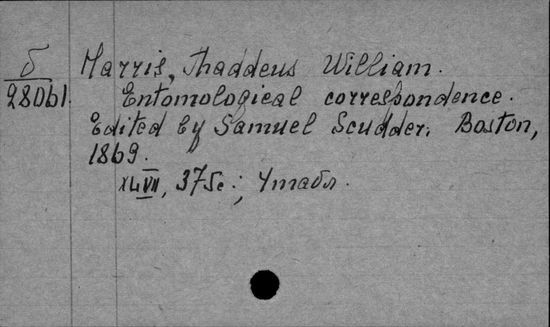 б
28061
Harris, Thaddeus William.
Entomological correspondence.
Edited by Samuel Scudder. Boston,
1869.
XLVII, 375с.; 4 табл.